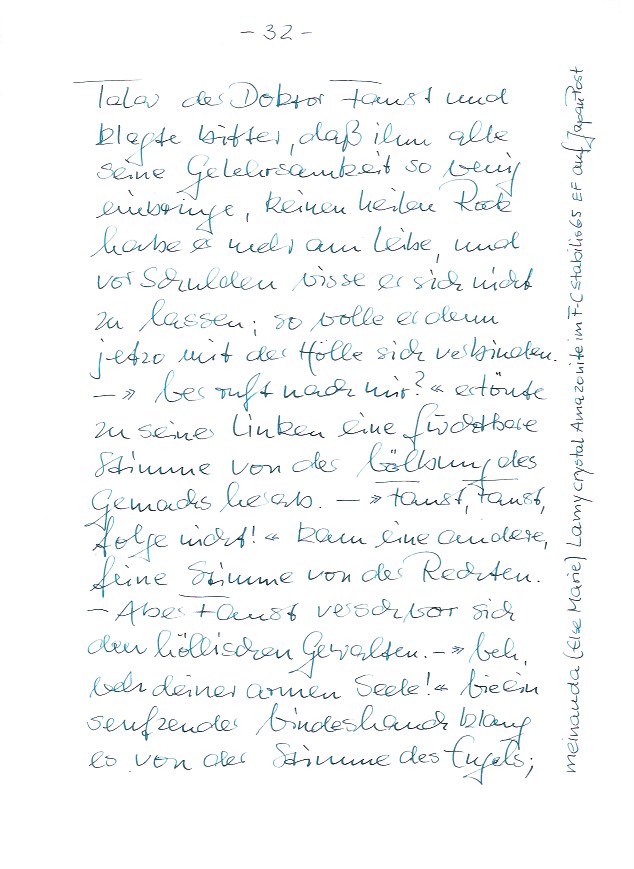 - 32 -
Talar der Doktor Faust und
klagte bitter, daß ihm alle
seine Gelehrsamkeit so wenig
einbringe, keinen heilen Rock
habe er mehr am Leibe, und
vor Schulden wisse er sich nicht
zu lassen; so wolle er denn
jetzo mit der Hölle sich verbinden.
— » Wer ruft nach mir? « ertönte
zu seiner Linken eine furchtbare
Stimme von der Wölbung des
Gemachs herab. — » Faust, Faust,
folge nicht! « kam eine andere,
feine Stimme von der Rechten.
— Aber Faust verschwor sich
den höllischen Gewalten. — » Weh,
weh deiner armen Seele! « Wie ein
seufzender Windeshauch klang
es von der Stimme des Engels;
meinanda (Else Marie) Lamy crystal Amazonite im F-C stabilis 65 EF auf Japan Post